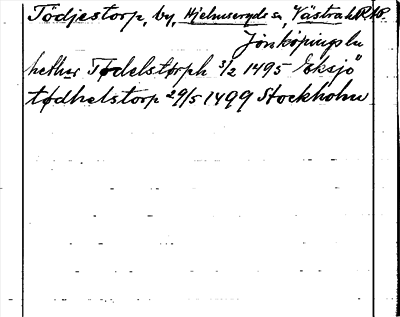 Tödjestorp, by, Hjelmseryds sn, Västra hd
Jönköpings ln
hether Tødelstørph 3/2 1495 Eksjö
tødhelstorp 29/5 1499 Stockholm